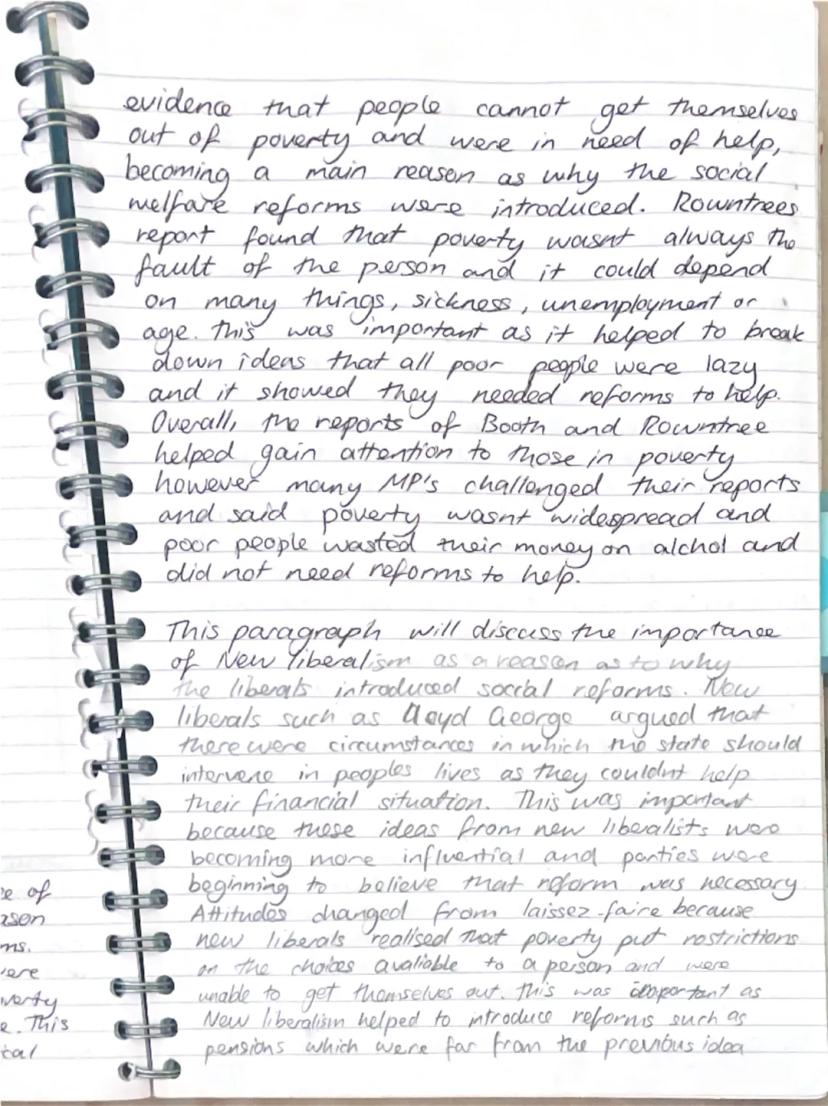 evidence that people cannot get themselves
out of poverty and were in need of help,
becoming a main reason as why the social
welfare reforms were introduced. Rowntrees
report found that poverty wasnt always the
fault of the person and it could depend
on many things, sickness, unemployment or
age. This was important as it helped to break
down ideas that all poor people were lazy
and it showed they needed reforms to help.
Overall, the reports of Booth and Rowntree
helped gain attention to those in poverty
however many MP's challenged their reports
and said poverty wasnt widespread and
poor people wasted their money on alchol and
did not need reforms to help.
This paragraph will discuss the importance
of New liberalism as a reason as to why
the liberals introduced social reforms. New
liberals such as Lloyd George argued that
there were circumstances in which the state should
intervene in peoples lives as they couldnt help
their financial situation. This was important
because these ideas from new liberalists were
becoming more influential and parties were
beginning to believe that reform was necessary.
Attitudes changed from laissez-faire because
new liberals realised that poverty put restrictions
on the choices avaliable to a person and were
unable to get themselves out. This was important as
New liberalism helped to introduce reforms such as
pensions which were far from the previous idea
e of
ason
ms.
ere
verty
e. This
tal